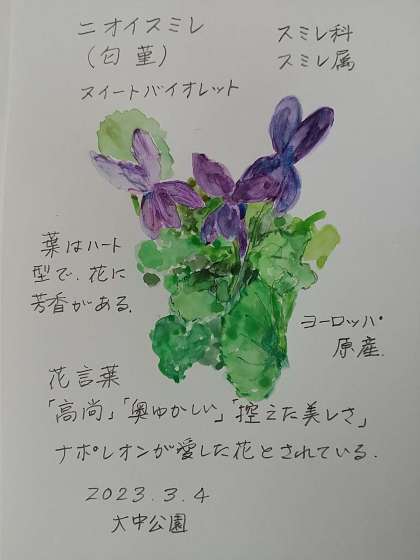 ニオイスミレ
(匂菫)
スイートバイオレット
スミレ科
スミレ属
葉はハート
型で、花に
芳香がある.
ヨーロッパ
原産.
花言葉
「高尚」「奥ゆかしい」「控えた美しさ」
ナポレオンが愛した花とされている.
2023.3.4
大中公園